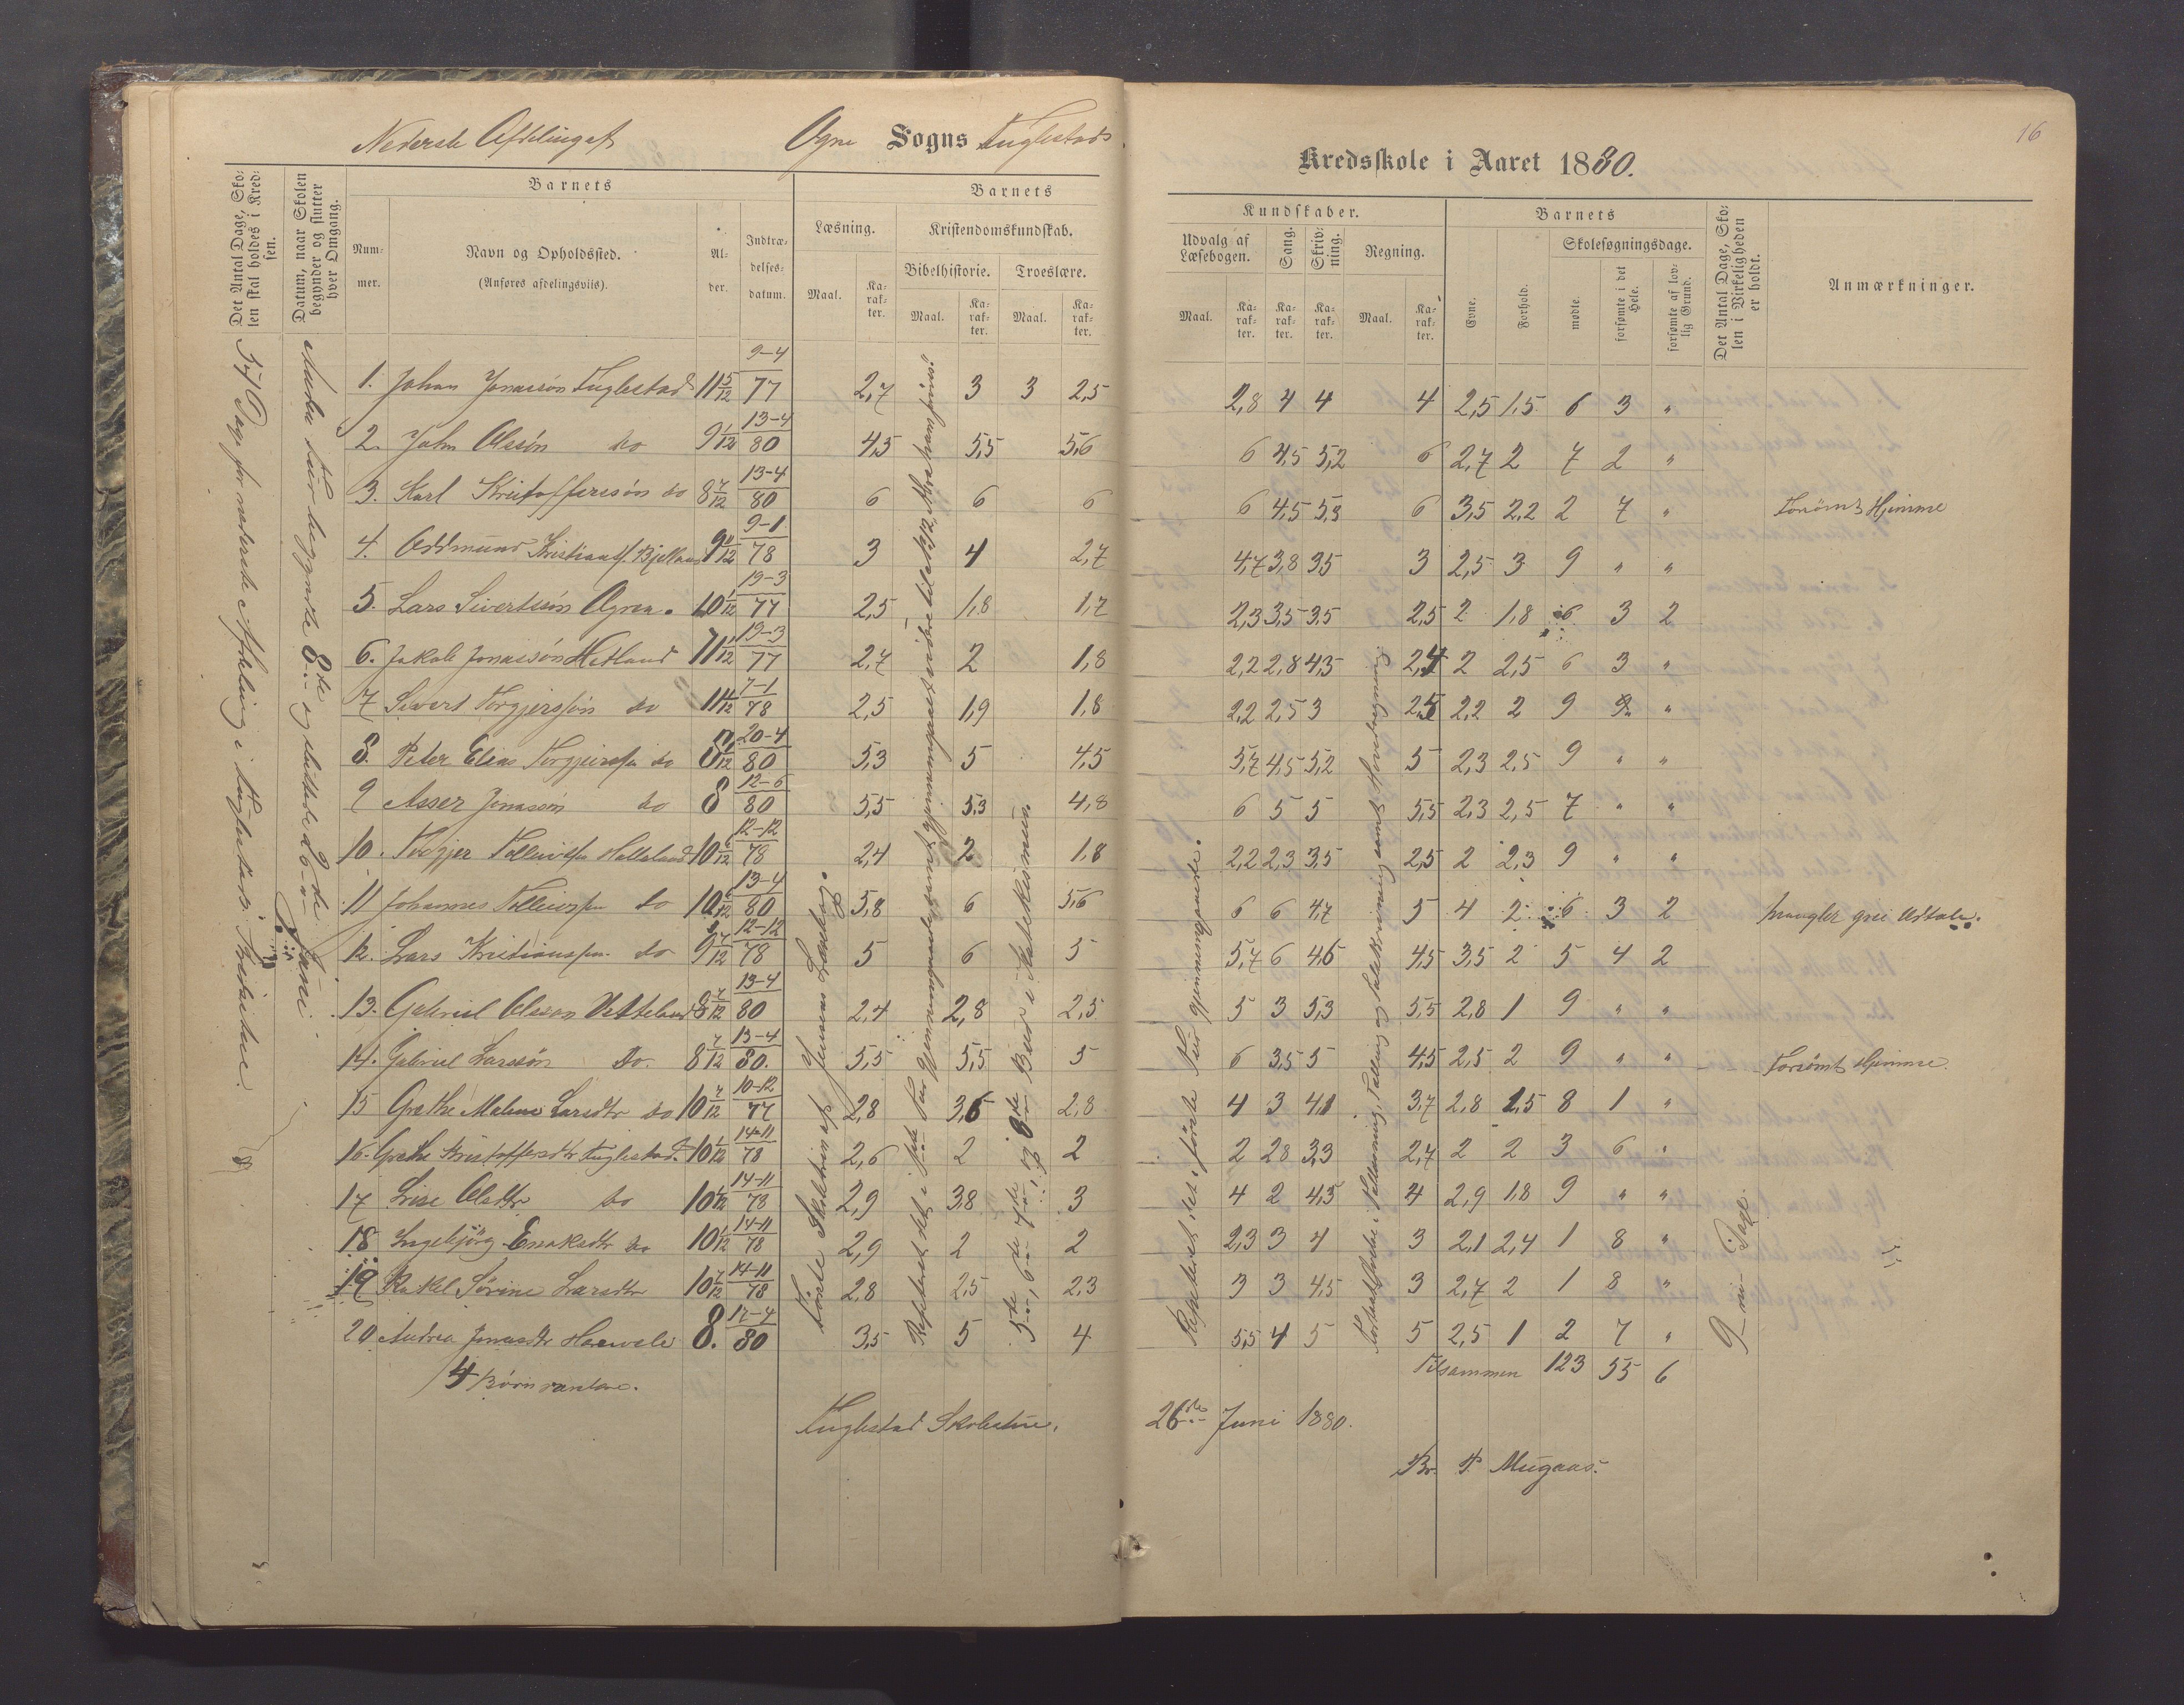 16
Nederste Afdeling af Ogne Sogns Fuglestads Kredsskole i Aaret 1880.
Det Antal Dage, Sko-
len skal holdes i Kred-
sen.
Datum, naar Skolen
begynder og slutter
hver Omgang.
Barnets
Num-
mer.
Navn og Opholdssted.
(Anføres afdelingsviis).
Al-
der.
Indtræ-
delses-
datum.
Barnets
Læsning.
Maal.
Ka-
rak-
ter.
Kristendomskundskab.
Bibelhistorie.
Maal.
Ka-
rak-
ter.
Troeslære.
Maal.
Ka-
rak-
ter.
Kundskaber.
Udvalg af
Læsebogen.
Maal.
Ka-
rak-
ter.
Sang.
Ka-
rak-
ter.
Skriv-
ning.
Ka-
rak-
ter.
Regning.
Maal.
Ka-
rak-
ter.
Barnets
Evne.
Forhold.
Skolesøgningsdage.
mødte.
forsømte i det
Hele.
forsømte af lov-
lig Grund.
Det Antal Dage, Sko-
len i Virkeligheden
er holdt.
Anmærkninger.
Dag for nederste Afdeling i Fuglestads
begyndte 8de og sluttede Juni
1. Johan Jonassøn Fuglestad 11 5/12 9-4/77 2,7 3 3 2,5 2,8 4 4 4 2,5 1,5 6 3 "
2. John Olssøn do 9 1/12 13-4/80 4,5 5,5 5,6 6 4,5 5,2 6 2,7 2 7 2 "
3. Karl Kristofferssøn do 8 7/12 13-4/80 6 6 6 6 4,5 5,3 6 3,5 2,2 2 7 " Forsømt Hjemme
4. Oddmund Kristians. Bjelland 9 11/12 9-1/78 3 4 2,7 4,7 3,8 3,5 3 2,5 3 9 " "
5. Lars Sivertsøn Ogna. 10 1/12 19-3/77 2,5 1,8 1,7 2,3 3,5 3,5 2,5 2 1,8 6 3 2
6. Jakob Jonassøn Hetland 11 1/12 19-3/77 2,7 2 1,8 2,2 2,8 4,5 2,4 2 2,5 6 3 "
7 Sivert Torgjerssøn do 11 4/12 7-1/78 2,5 1,9 1,8 2,2 2,5 3 2,5 2,2 2 9 "
8. Peter Elias Torgjerss. do 20-4/80 5,3 5 4,5 5,7 4,5 5,2 5 2,3 2,5 9 " "
9 Asser Jonassøn do 8 12-6/80 5,5 5,3 4,8 6 5 5 5,5 2,3 2,5 7 " "
10. Torgjer Tollevss. Holland 10 12-12/78 2,4 2 1,8 2,2 2,3 3,5 2,5 2 2,3 9 " "
11 Johannes Tollevss. do 10 13-4/80 5,8 6 5,6 6 6 4,7 5 4 2 6 3 2 Mangler Udtale.
12. Lars Kristianss. do 9 7/12 12-12/78 5 6 5 5,7 6 4,6 4,5 3,5 2 5 4 2
13. Gabriel Olsson Vetteland 8 7/12 13-4/80 2,4 2,8 2,5 5 3 5,3 5,5 2,8 1 9 " "
14. Gabriel Larssøn Do. 8 7/12 13-4/80. 5,5 5,5 5 6 3,5 5 4,5 2,5 2 9 " " Forsømt Hjemme.
15 Grethe Malene Larsdtr do 10 7/12 10-12/77 2,8 3,6 2,8 4 3 4,1 3,7 2,8 1,5 8 1 "
16. Grethe Kristoffersdtr Fuglestad. 10 1/12 14-11/78 2,6 2 2 2 2,8 3,3 2,7 2 2 3 6 "
17 Lise Olsdtr do 10 1/12 14-11/78 2,9 3,8 3 4 2 4,5 4 2,9 1,8 9 " "
18 Ingebjörg Enoksdtr do 10 1/12 14-11/78 2,9 2 2 2,3 3 4 3 2,1 2,4 1 8 "
19 Rakel Sørine Larsdtr 10 7/12 14-11/78 2,8 2,5 2,3 3 3 4,5 3 2,7 2 1 8 "
20 Andrea Jonasdtr 8. 12-4/80 3,5 5 4 5,5 4 5 5 2,5 1 2 7 "
Tilsammen 123 55 6
Børn
Jensens Læsebog.
5te, 6te, 7de og 8de Bud i Katekismus.
Repeteret det første gjennemgaaede.
9 ni Dage.
Fuglestad Skolestue. 26de Juni 1880.
Br. T. Mugaas.